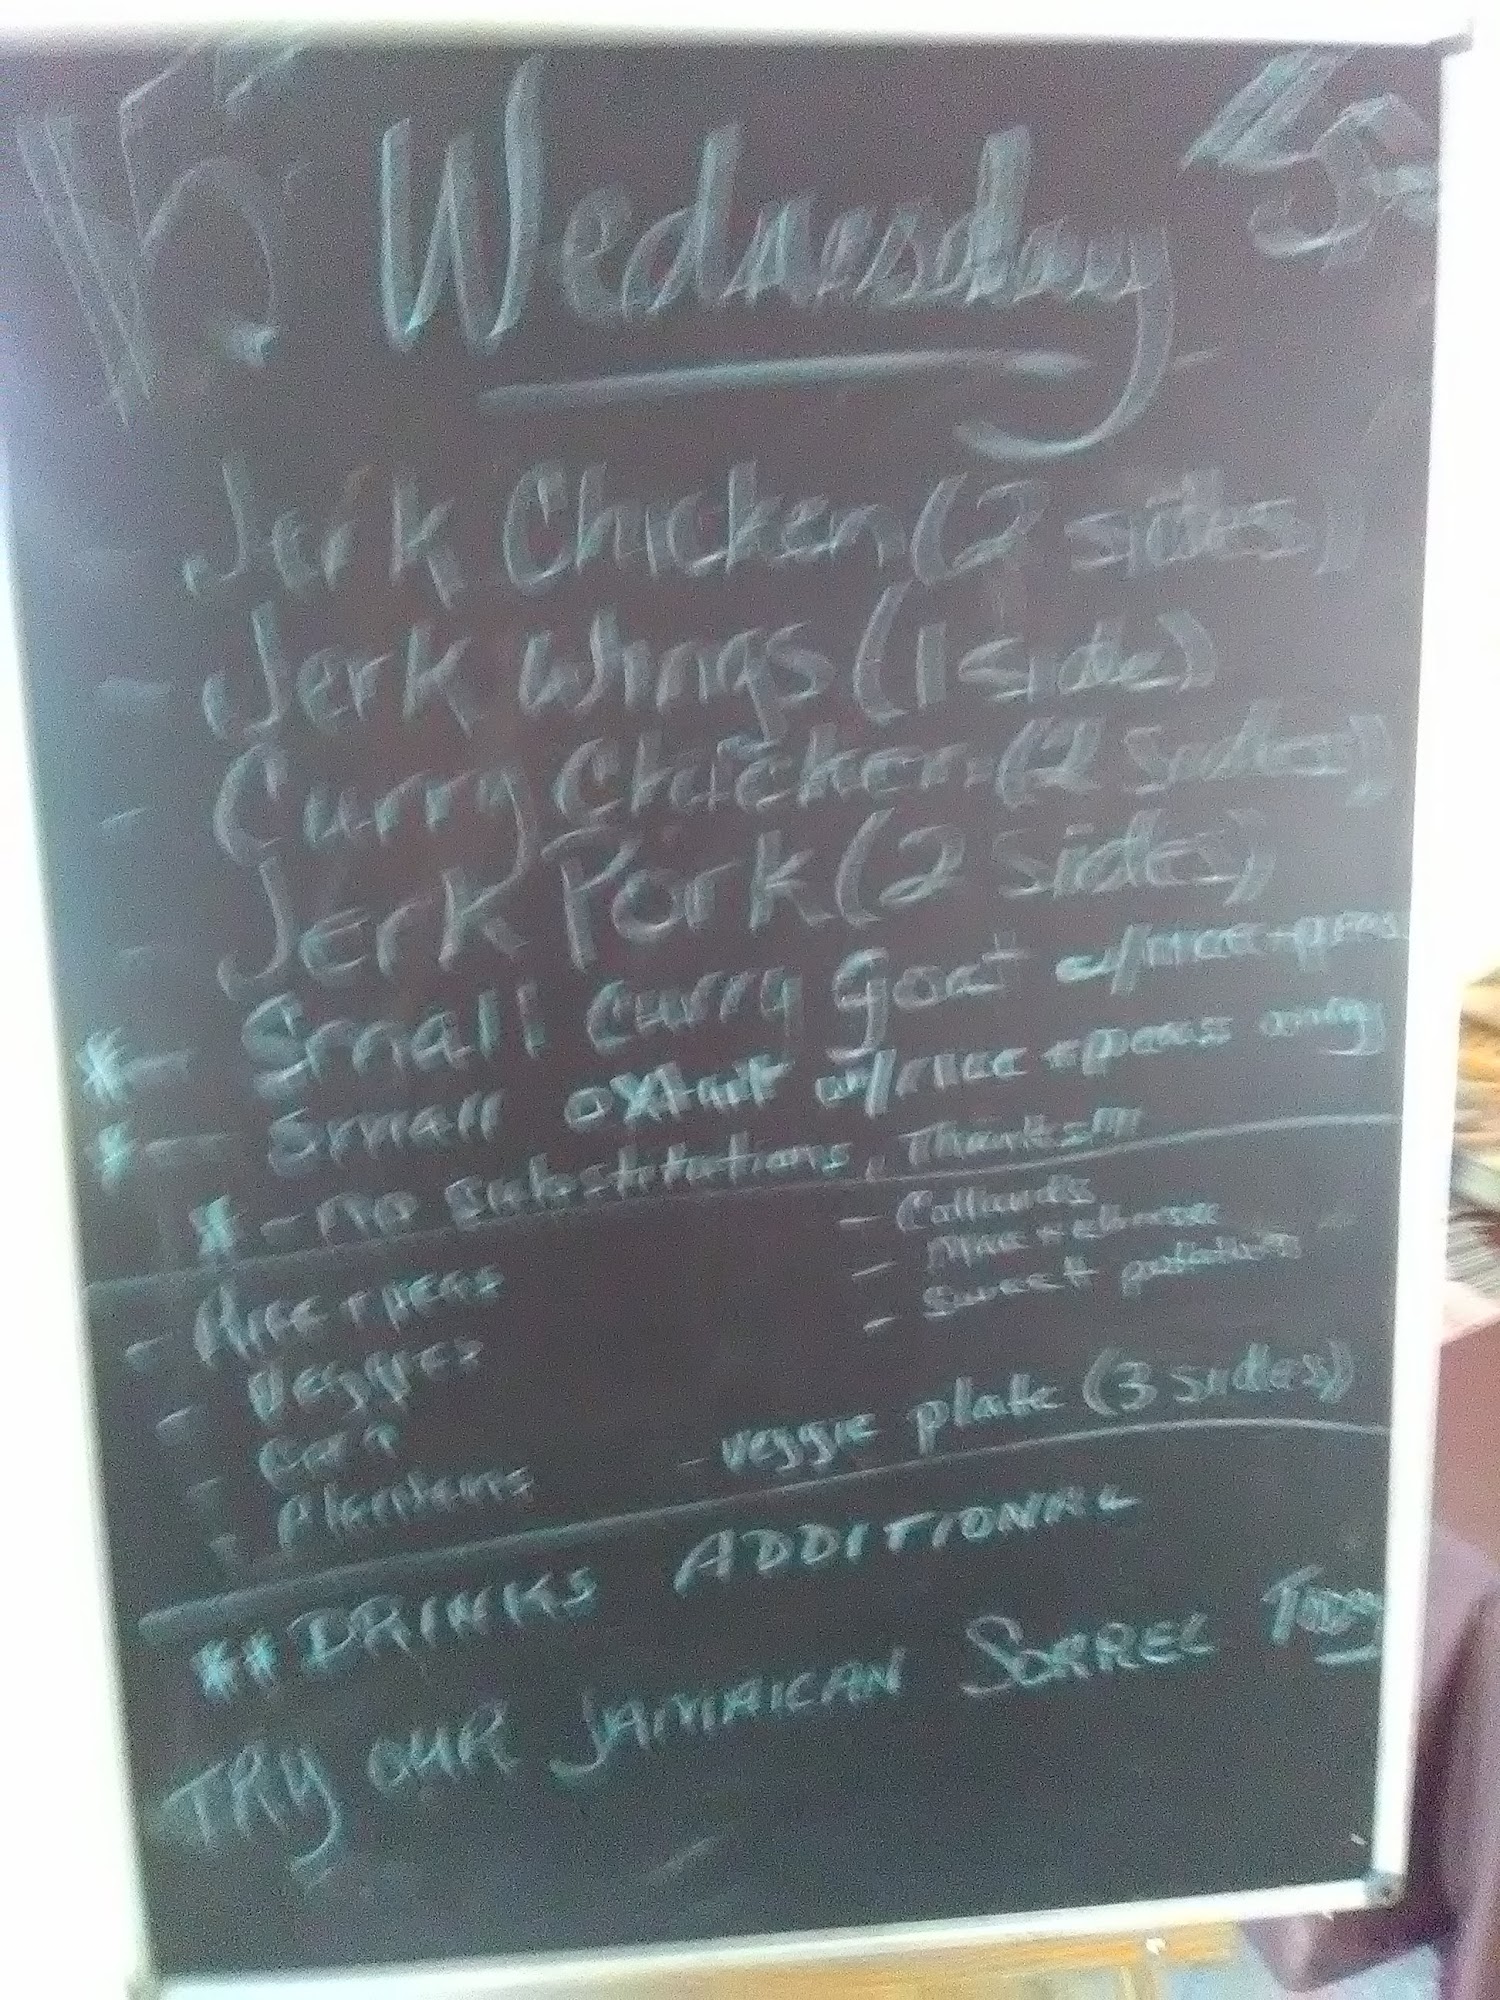 Wednesday
- Jerk Chicken (2 sides)
- Jerk Wings (1 side)
- Curry Chicken (2 sides)
- Jerk Pork (2 sides)
* - Small Curry Goat w/rice + peas
* - Small oxtail w/rice + peas only
* - NO substitutions, Thanks!!!
- Rice + peas
- Veggies
- Corn
- Plantains
- Collards
- Mac + cheese
- Sweet potatoes
- veggie plate (3 sides)
** DRINKS ADDITIONAL
TRY OUR JAMAICAN SORREL